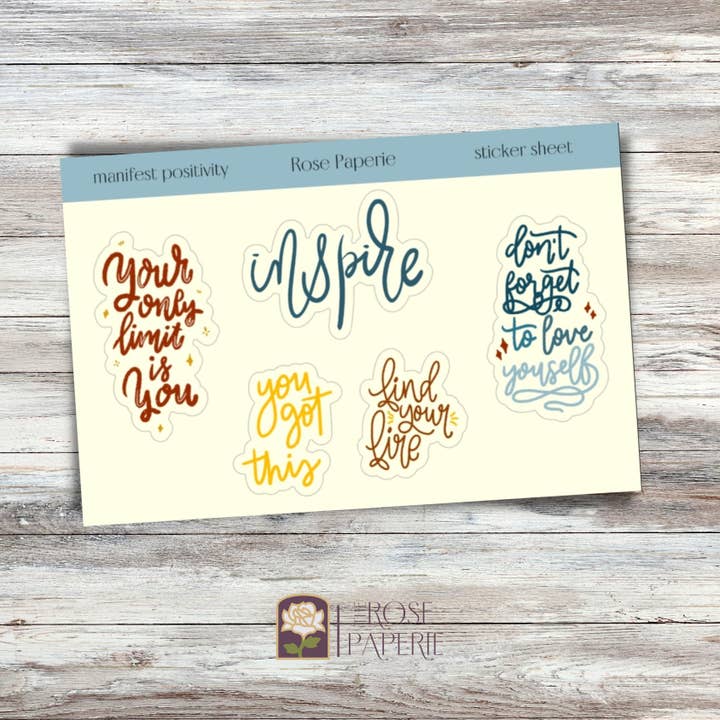 manifest positivity
Rose Paperie
sticker sheet
Your
only
limit
is
You
inspire
don't
forget
to love
youself
you
got
this
find
your
fire
THE
ROSE
PAPERIE